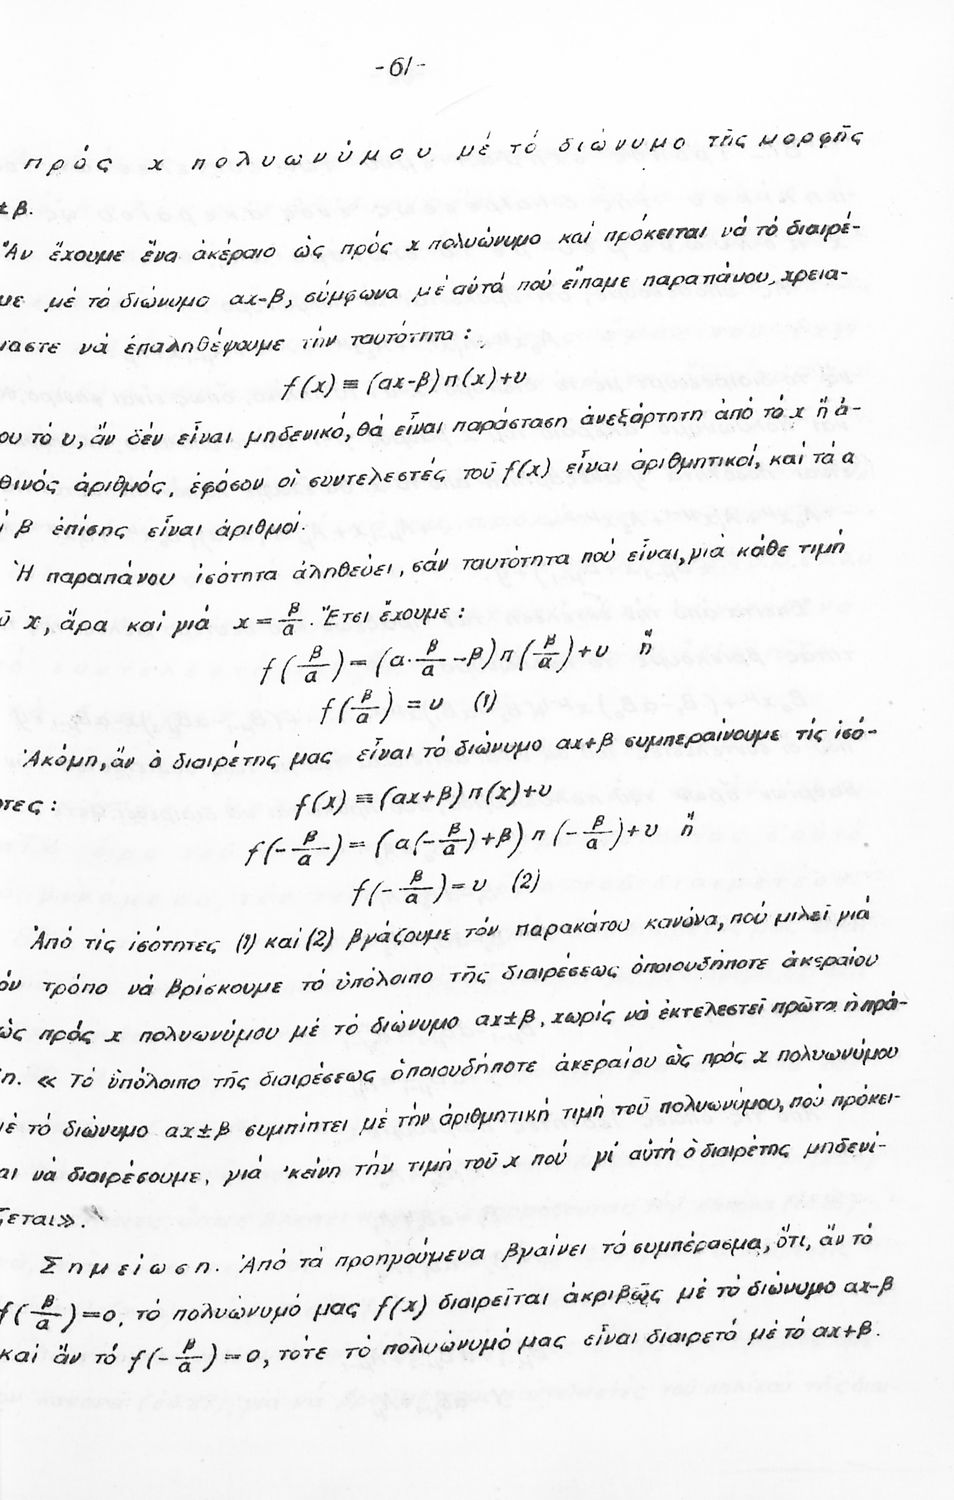 -61-
πρός χ πολυωνύμου μέ τό διώνυμο τῆς μορφῆς
±β.
Ἄν ἔχουμε ἕνα ἀκέραιο ὡς πρός χ πολυώνυμο καί πρόκειται νά τό διαιρέ-
με μέ τό διώνυμο αχ-β, σύμφωνα μέ αὐτά πού εἴπαμε παραπάνου, χρεια-
μαστε νά ἐπαληθέψουμε τήν ταυτότητα :
f(χ)≡(αχ-β)π(χ)+υ
ου τό υ, ἄν δέν εἶναι μηδενικό, θά εἶναι παράσταση ἀνεξάρτητη ἀπό τό χ ἤ ἀ-
θινός ἀριθμός, ἐφόσον οἱ συντελεστές τοῦ f(χ) εἶναι ἀριθμητικοί, καί τά α
ί β ἐπίσης εἶναι ἀριθμοί.
Ἡ παραπάνου ἰσότητα ἀληθεύει, σάν ταυτότητα πού εἶναι, γιά κάθε τιμή
ῦ χ, ἄρα καί γιά χ = β/α . Ἔτσι ἔχουμε :
f(β/α)=(α·β/α-β)π(β/α)+υ ἤ
f(β/α) = υ (1)
Ἀκόμη, ἄν ὁ διαιρέτης μας εἶναι τό διώνυμο αχ+β συμπεραίνουμε τίς ἰσό-
τες :
f(χ)≡(αχ+β)π(χ)+υ
f(-β/α)=(α(-β/α)+β)π(-β/α)+υ ἤ
f(-β/α)=υ (2)
Ἀπό τίς ἰσότητες (1) καί (2) βγάζουμε τόν παρακάτου κανόνα, πού μιλεῖ γιά
όν τρόπο νά βρίσκουμε τό ὑπόλοιπο τῆς διαιρέσεως ὁποιουδήποτε ἀκεραίου
ὡς πρός χ πολυωνύμου μέ τό διώνυμο αχ±β, χωρίς νά ἐκτελεστεῖ πρῶτα ἡ πρά-
η. « Τό ὑπόλοιπο τῆς διαιρέσεως ὁποιουδήποτε ἀκεραίου ὡς πρός χ πολυωνύμου
μέ τό διώνυμο αχ±β συμπίπτει μέ τήν ἀριθμητική τιμή τοῦ πολυωνύμου, πού πρόκει-
αι νά διαιρέσουμε, γιά 'κείνη τήν τιμή τοῦ χ πού γι αὐτή ὁ διαιρέτης μηδενί-
ζεται».
Σημείωση. Ἀπό τά προηγούμενα βγαίνει τό συμπέρασμα, ὅτι, ἄν τό
f(β/α)=0, τό πολυώνυμό μας f(χ) διαιρεῖται ἀκριβῶς μέ τό διώνυμο αχ-β
καί ἄν τό f(-β/α)=0, τότε τό πολυώνυμό μας εἶναι διαιρετό μέ τό αχ+β.